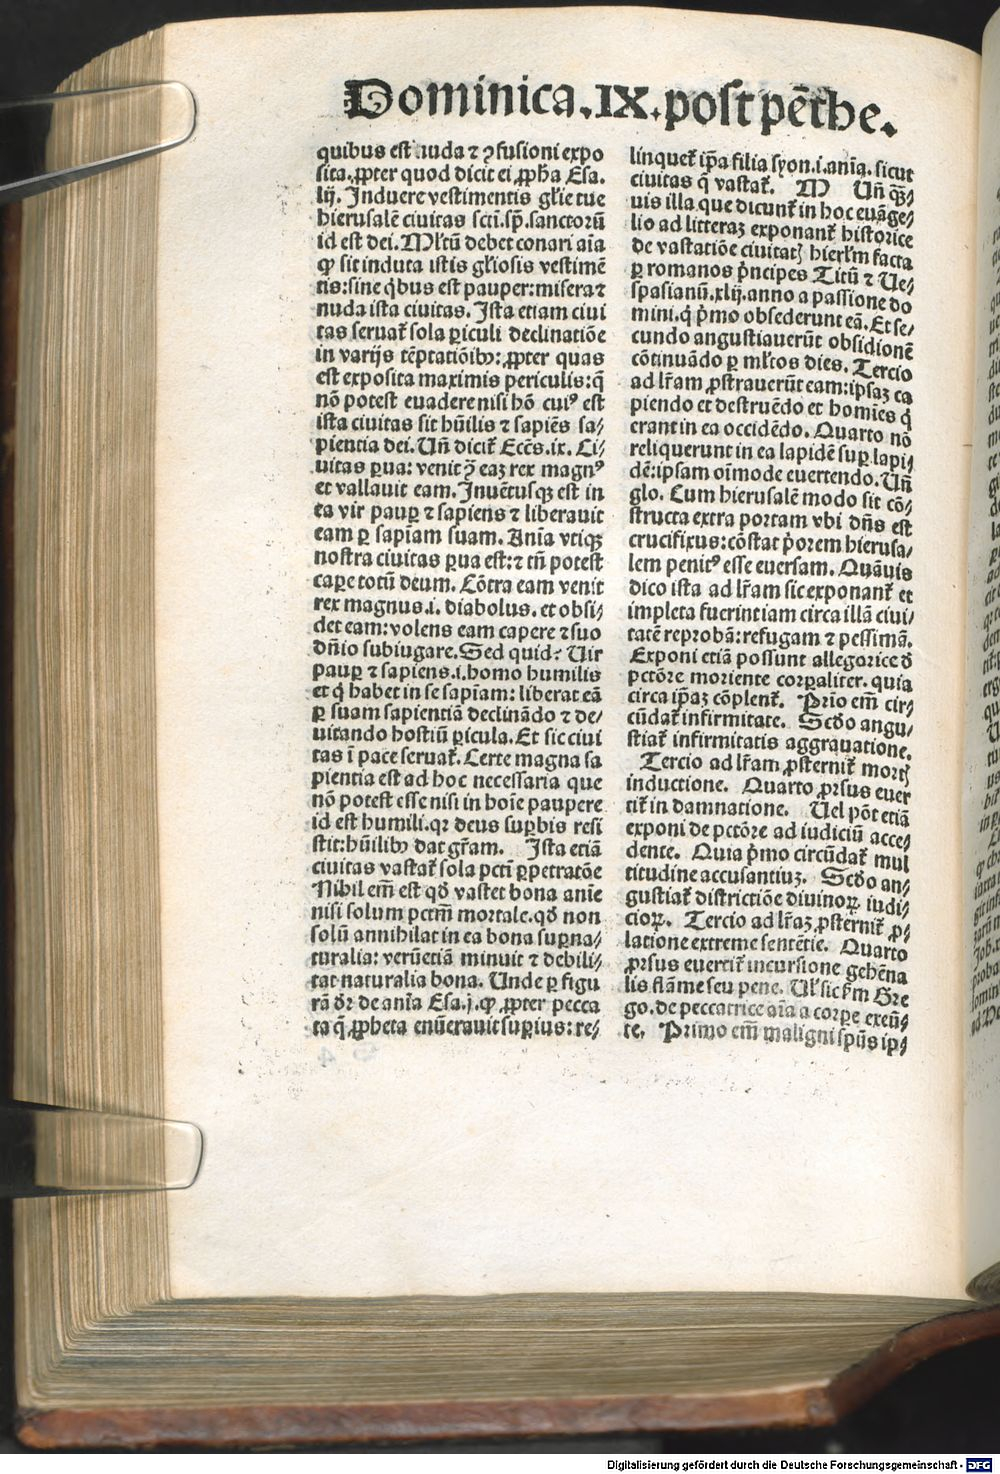 Dominica.IX.post pēthe.
quibus est nuda ⁊ ꝯfusioni expo
sita. ꝓpter quod dicit ei ꝓpħa Esa.
lij. Induere vestimentis glīe tue
hierusalē ciuitas scti.sp.sanctorū
id est dei. Mltū debet conari aīa
ꝙ sit induta istis gliosis vestimē
tis: sine qͥbus est pauper: misera ⁊
nuda ista ciuitas. Ista etiam ciui
tas seruat̄ sola ꝑiculi declinatiōe
in varijs tēptatiōibꝫ: ꝓpter quas
est exposita maximis periculis: q̄
nō potest euadere nisi hō cuiꝰ est
ista ciuitas sit hūilis ⁊ sapiēs sa⸗
pientia dei. Uñ dicit̄ Eccēs.ix. Ci⸗
uitas ꝑua: venit ꝯ̄ eaꝫ rex magnꝰ
et vallauit eam. Inuētusqꝫ est in
ea vir paupꝑ ⁊ sapiens ⁊ liberauit
eam ꝑ sapīam suam. Anīa vtiqꝫ
nostra ciuitas ꝑua est: ⁊ tñ potest
caꝑe totū deum. Cōtra eam venit
rex magnus.i. diabolus. et obsi⸗
det eam: volens eam capere ⁊ suo
dñio subiugare. Sed quid? Uir
paupꝑ ⁊ sapiens.i.homo humilis
et qͥ habet in se sapīam: liberat eā
ꝑ suam sapientiā declinādo ⁊ de⸗
uitando hostiū ꝑicula. Et sic ciui
tas ī pace seruat̄. Certe magna sa
pientia est ad hoc necessaria que
nō potest esse nisi in hoīe paupere
id est humili. qꝛ deus supꝑbis resi
stit: hūilibꝫ dat gr̄am. Ista etiā
ciuitas vastat̄ sola pcti ꝑpetratōe
Nihil em̄ est qd̄ vastet bona anīe
nisi solum pctm̄ mortale. qd̄ non
solū annihilat in ea bona supꝑna⸗
turalia: verūetiā minuit ⁊ debili⸗
tat naturalia bona. Unde ꝑ figu
rā dꝛ̄ de anīa Esa.j. ꝙ ꝓpter pecca
ta q̄ ꝓpheta enūerauit supꝑius: re⸗
linquet̄ ip̄a filia syon.i.anīa. sicut
ciuitas q̄ vastat̄. M Uñ qꝫ̄⸗
uis illa que dicunt̄ in hoc euāge⸗
lio ad litteraꝫ exponant̄ historice
de vastatiōe ciuitatꝭ hierlm̄ facta
ꝑ romanos pͥncipes Titū ⁊ Ue⸗
spasianū.xlij. anno a passione do
mini. qͥ pͥmo obsederunt eā. Et se⸗
cundo angustiauerūt obsidionē
cōtinuādo ꝑ ml̄tos dies. Tercio
ad lr̄am ꝓstrauerūt eam: ipsaꝫ ca
piendo et destruēdo et homīes qͥ
erant in ea occidēdo. Quarto nō
reliquerunt in ea lapidē supꝑ lapi⸗
dē: ipsam oīmode euertendo. Uñ
glo. Cum hierusalē modo sit cō⸗
structa extra portam vbi dñs est
crucifixus: cōstat pͥorem hierusa⸗
lem penitꝰ esse euersam. Quāuis
dico ista ad lr̄am sic exponant̄ et
impleta fuerint iam circa illā ciui⸗
tatē reprobā: refugam ⁊ pessimā.
Exponi etiā possunt allegorice ð
pctōre moriente corꝑaliter. quia
circa ip̄aꝫ cōplent̄. Prīo em̄ cir⸗
cūdat̄ infirmitate. Scd̄o angu⸗
stiat̄ infirmitatis aggrauatione.
Tercio ad lr̄am ꝓsternit̄ mortꝭ
inductione. Quarto prorsus euer
tit̄ in damnatione. Uel pōt etiā
exponi de pctōre ad iudiciū acce⸗
dente. Quia pͥmo circūdat̄ mul
titudine accusantiuꝫ. Scd̄o an⸗
gustiat̄ districtiōe diuinoꝝ iudi⸗
cioꝝ. Tercio ad lr̄aꝫ ꝓsternit̄ ꝓ⸗
latione extreme sentētie. Quarto
prorsus euertit̄ incursione gehēna
lis flāme seu pene. Ul̄ sic sm̄ Gre
go. de peccatrice aīa a corꝑe exeū⸗
te. Primo em̄ maligni spūs ip⸗
Digitalisierung gefördert durch die Deutsche Forschungsgemeinschaft - DFG